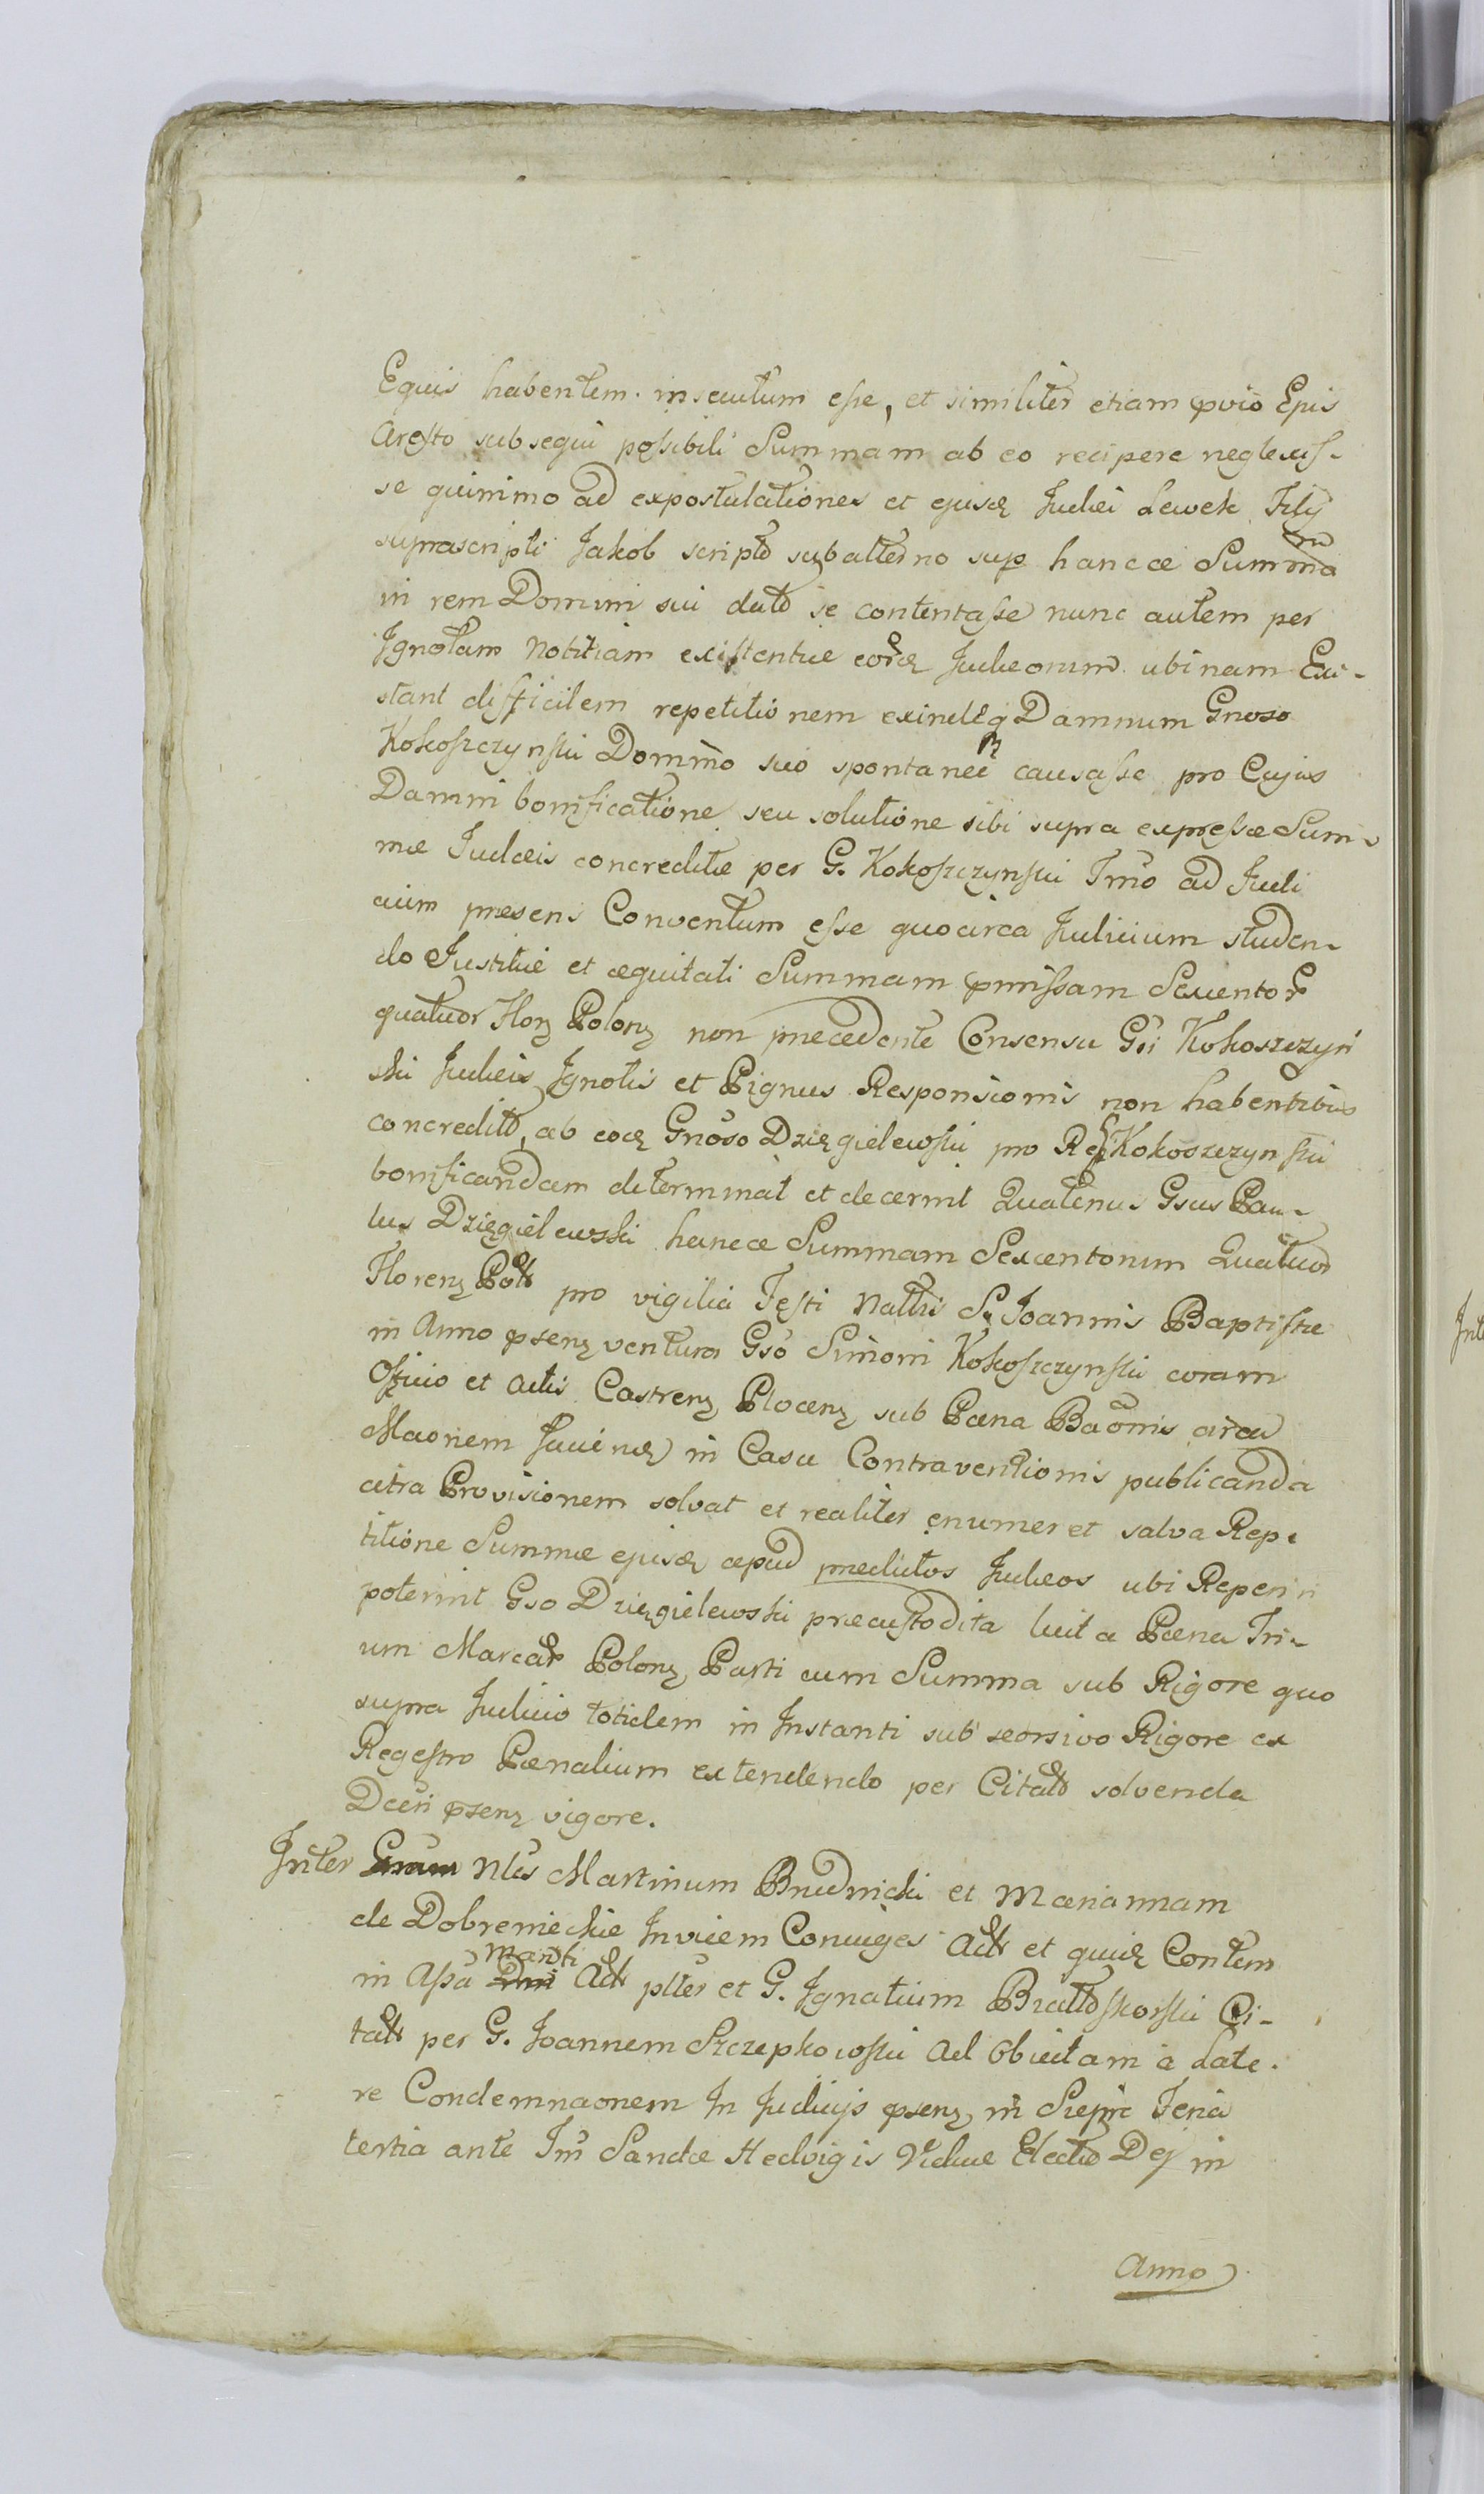 Equis habentem insecutum esse, et similiter etiam pvio Epis
Aresto subsequi possibili Summam ab eo recipere neglexis-
se quinimo ad expostulationes et ejusd Judei Lewek Filij
suprascripti Jakob scripto subalterno sup hancce Summa
in rem Domini sui dato se contentasse nunc autem per
Ignotam notitiam existentiae eord Judaeorum ubinam Exi-
stant difficilem repetitionem exindeq Damnum Gnoso
Kokoszczynski Domino suo spontanee causasse pro Cujus
Damni bonificatione seu solutione sibi supra expressae Sum-
mae Judaeis concreditae per G. Kokoszczynski Tmo ad Judi
cium praesens Conventum esse quocirca Judicium studen-
do Justitiae et aequitati Summam pmissam Sexentor
quatuor Flor Polon non praecedente Consensu Gsi Kokoszczyń
ski Judaeis Ignotis et Pignus Responsionis non habentibus
concredito, ab eod Gnoso Dzięgielewski pro Re Kokoszczynski
bonificandam determinat et decernit Quatenus Gsus Pau-
lus Dzięgielewski hancce Summam Sexcentorum Quatuor
Floren Pol pro vigilia Festi Nattis S. Joannis Baptistae
in Anno psen venturo Gso Simoni Kokoszczynski coram
Officio et Actis Castren Plocen sub Paena Baonis circa
Maonem in Casu Contraventionis publicanda
citra Provisionem solvat et realiter enumeret salva Repe
titione Summae ejusd apud praedictos Judaeos ubi Reperiri
poterint Gso Dzięgielewski praecustodita luit a Paena Tri-
um Marcar Polon Parti cum Summa sub Rigore quo
supra Judicio totidem in Instanti sub seorsivo Rigore ex
Regestro Paenalium extendendo per Citat solvenda
Dcti psen vigore.
Inter Gnum Nles Martinum Brudnicki et Mariannam
de Dobrenieckie Invicem Conjuges Act et quid Contem
in Assa Dni Mariti Act plter et G. Ignatium Ci-
tat per G. Joannem Szczepkowski Ad Obvietam a Late-
re Condemnaonem In Judicijs psen in Sieprc Feria
tertia ante Fm Sanctae Hedvigis Viduae Electae Dej in
Anno